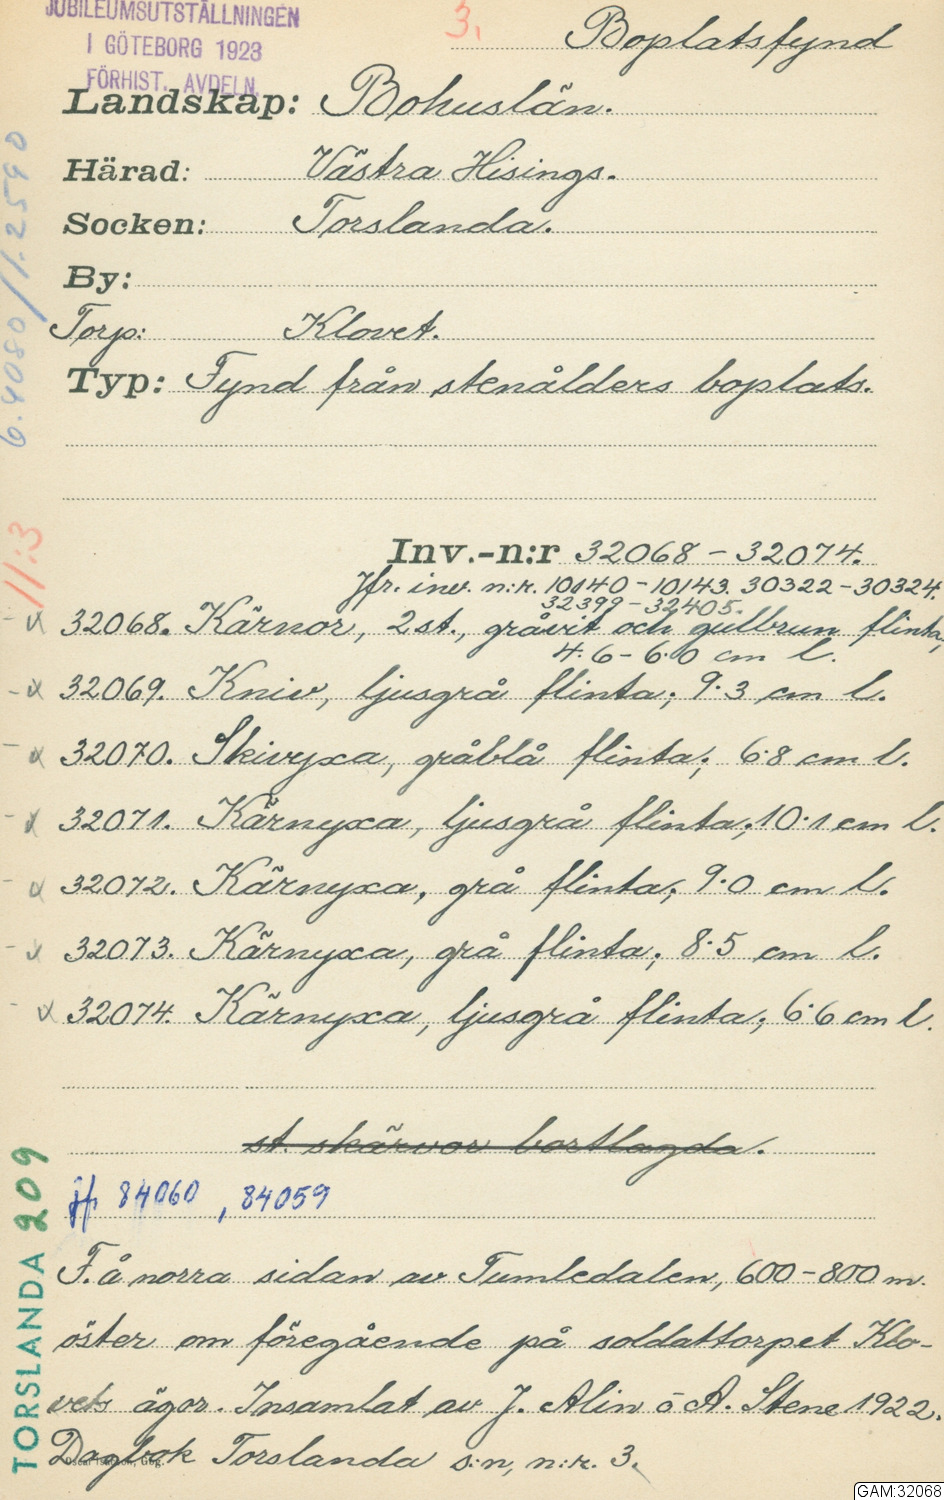 JUBILEUMSUTSTÄLLNINGEN
I GÖTEBORG 1923
FÖRHIST. AVDELN.
3.
Boplatsfynd
Landskap: Bohuslän.
Härad: Västra Hisings.
Socken: Torslanda.
By:
Torp: Klovet.
Typ: Fynd från stenålders boplats.
6.4080/1.2590
11:3
Inv.-n:r 32068 - 32074.
Jfr. inv. n:r. 10140 - 10143. 30322 - 30324.
32399 - 32405.
x 32068. Kärnor, 2 st., gråvit och gulbrun flinta,
4.6 - 6.0 cm l.
x 32069. Kniv, ljusgrå flinta; 9.3 cm l.
x 32070. Skivyxa, gråblå flinta; 6.8 cm l.
x 32071. Kärnyxa, ljusgrå flinta; 10.1 cm l.
x 32072. Kärnyxa, grå flinta; 9.0 cm l.
x 32073. Kärnyxa, grå flinta; 8.5 cm l.
x 32074. Kärnyxa, ljusgrå flinta; 6.6 cm l.
st. skärvor bortlagda.
jfr 84060, 84059
TORSLANDA 209
F. å norra sidan av Tumledalen, 600-800 m.
öster om föregående på soldattorpet Klo-
vets ägor. Insamlat av J. Alin o A. Stene 1922.
Dagbok Torslanda s:n, n:r. 3.
GAM:32068